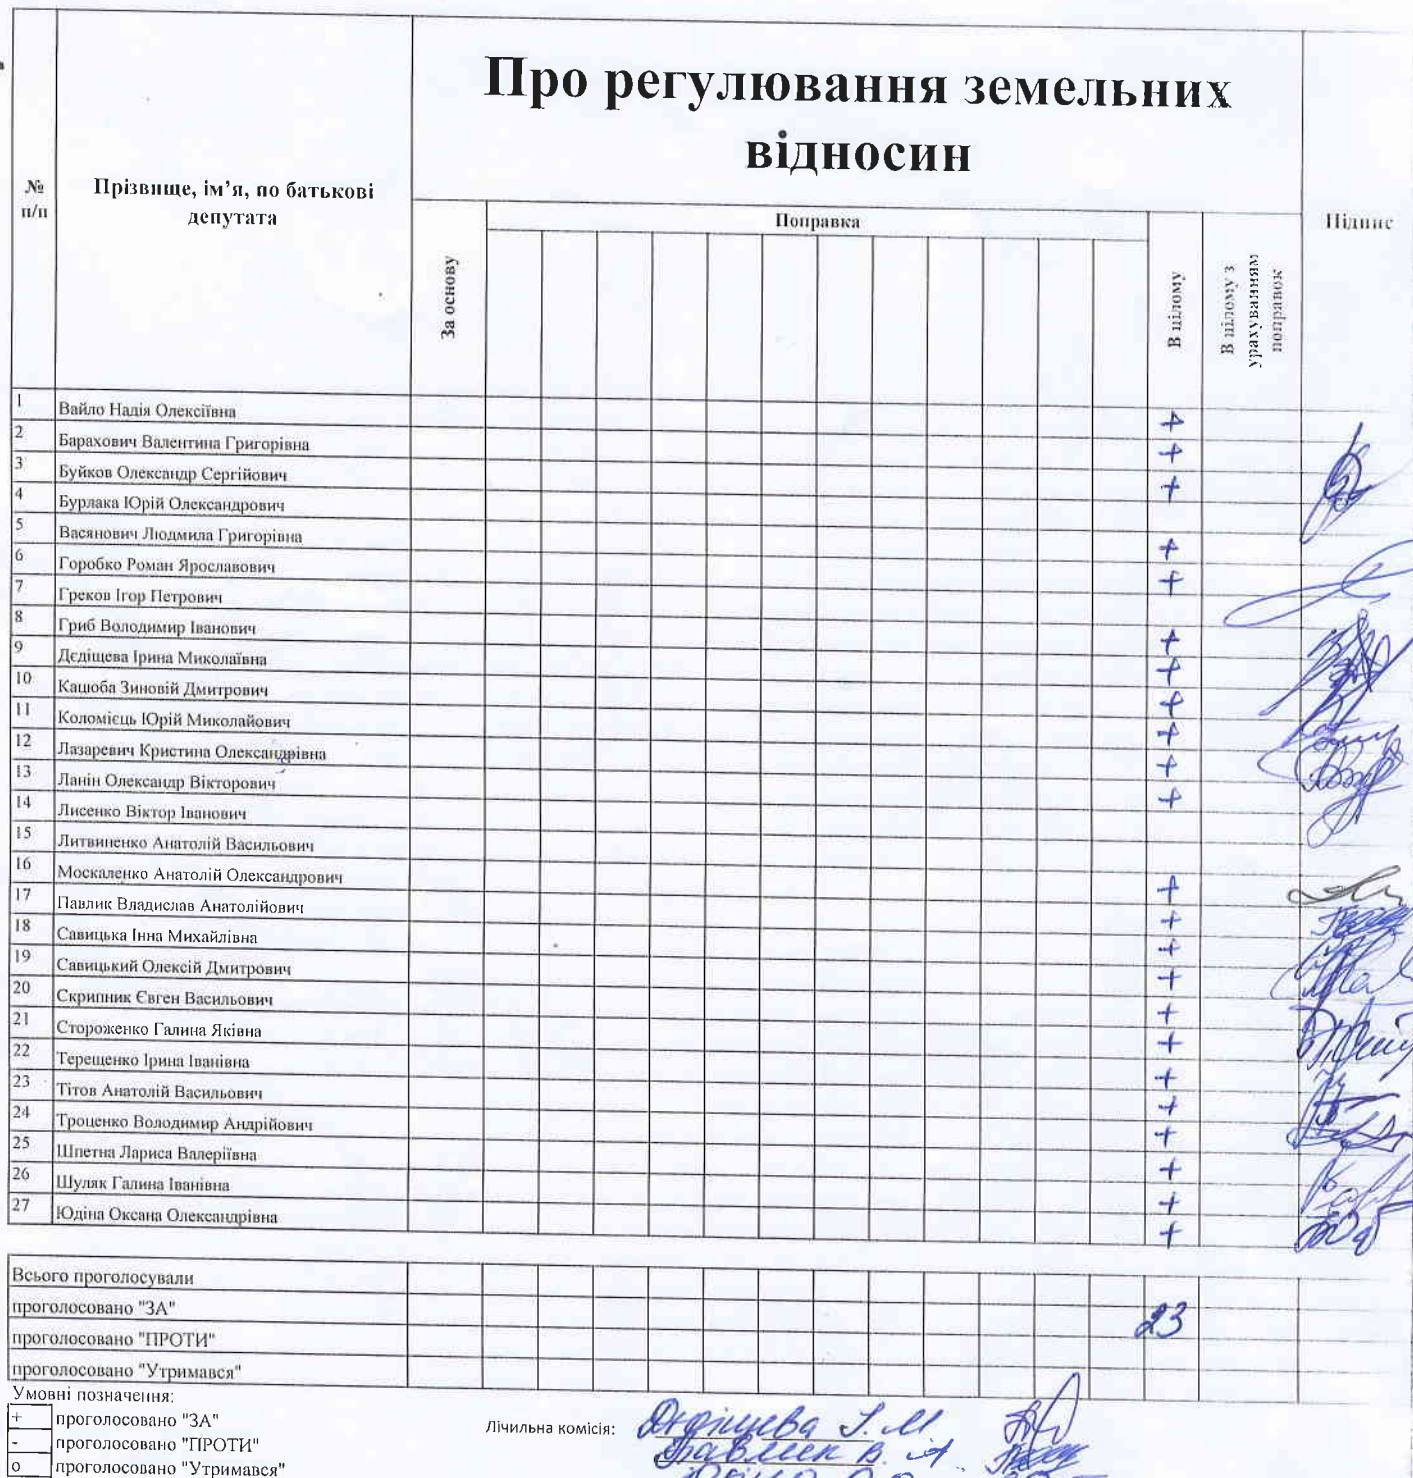 Про регулювання земельних
відносин
№
п/п
Прізвище, ім’я, по батькові
депутата
За основу
Поправка
В цілому
В цілому з
урахуванням
поправок
Підпис
1 Вайло Надія Олексіївна +
2 Барахович Валентина Григорівна +
3 Буйков Олександр Сергійович +
4 Бурлака Юрій Олександрович
5 Васянович Людмила Григорівна +
6 Горобко Роман Ярославович +
7 Греков Ігор Петрович
8 Гриб Володимир Іванович +
9 Дєдіщева Ірина Миколаївна +
10 Кацюба Зиновій Дмитрович +
11 Коломієць Юрій Миколайович +
12 Лазаревич Кристина Олександрівна +
13 Ланін Олександр Вікторович +
14 Лисенко Віктор Іванович
15 Литвиненко Анатолій Васильович
16 Москаленко Анатолій Олександрович +
17 Павлик Владислав Анатолійович +
18 Савицька Інна Михайлівна +
19 Савицький Олексій Дмитрович +
20 Скрипник Євген Васильович +
21 Стороженко Галина Яківна +
22 Терещенко Ірина Іванівна +
23 Тітов Анатолій Васильович +
24 Троценко Володимир Андрійович +
25 Шпетна Лариса Валеріївна +
26 Шуляк Галина Іванівна +
27 Юдіна Оксана Олександрівна +
Всього проголосували
проголосовано "ЗА" 23
проголосовано "ПРОТИ"
проголосовано "Утримався"
Умовні позначення:
+ проголосовано "ЗА"
- проголосовано "ПРОТИ"
о проголосовано "Утримався"
Лічильна комісія: Дєдіщева І. М.
Павлик В. А